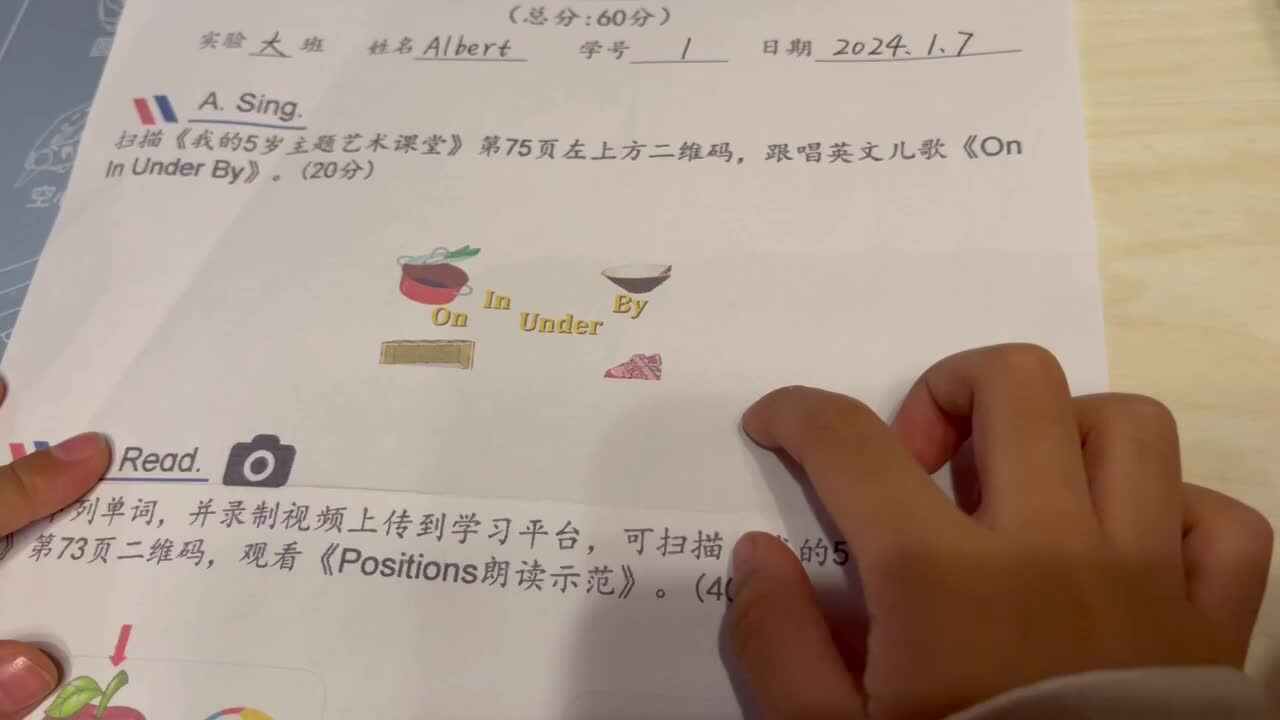 (总分:60分)
实验 大 班 姓名 Albert 学号 1 日期 2024.1.7
A. Sing.
扫描《我的5岁主题艺术课堂》第75页左上方二维码，跟唱英文儿歌《On
In Under By》。(20分)
In
By
On
Under
Read.
列单词，并录制视频上传到学习平台，可扫描 的5
》第73页二维码，观看《Positions朗读示范》。(4
空